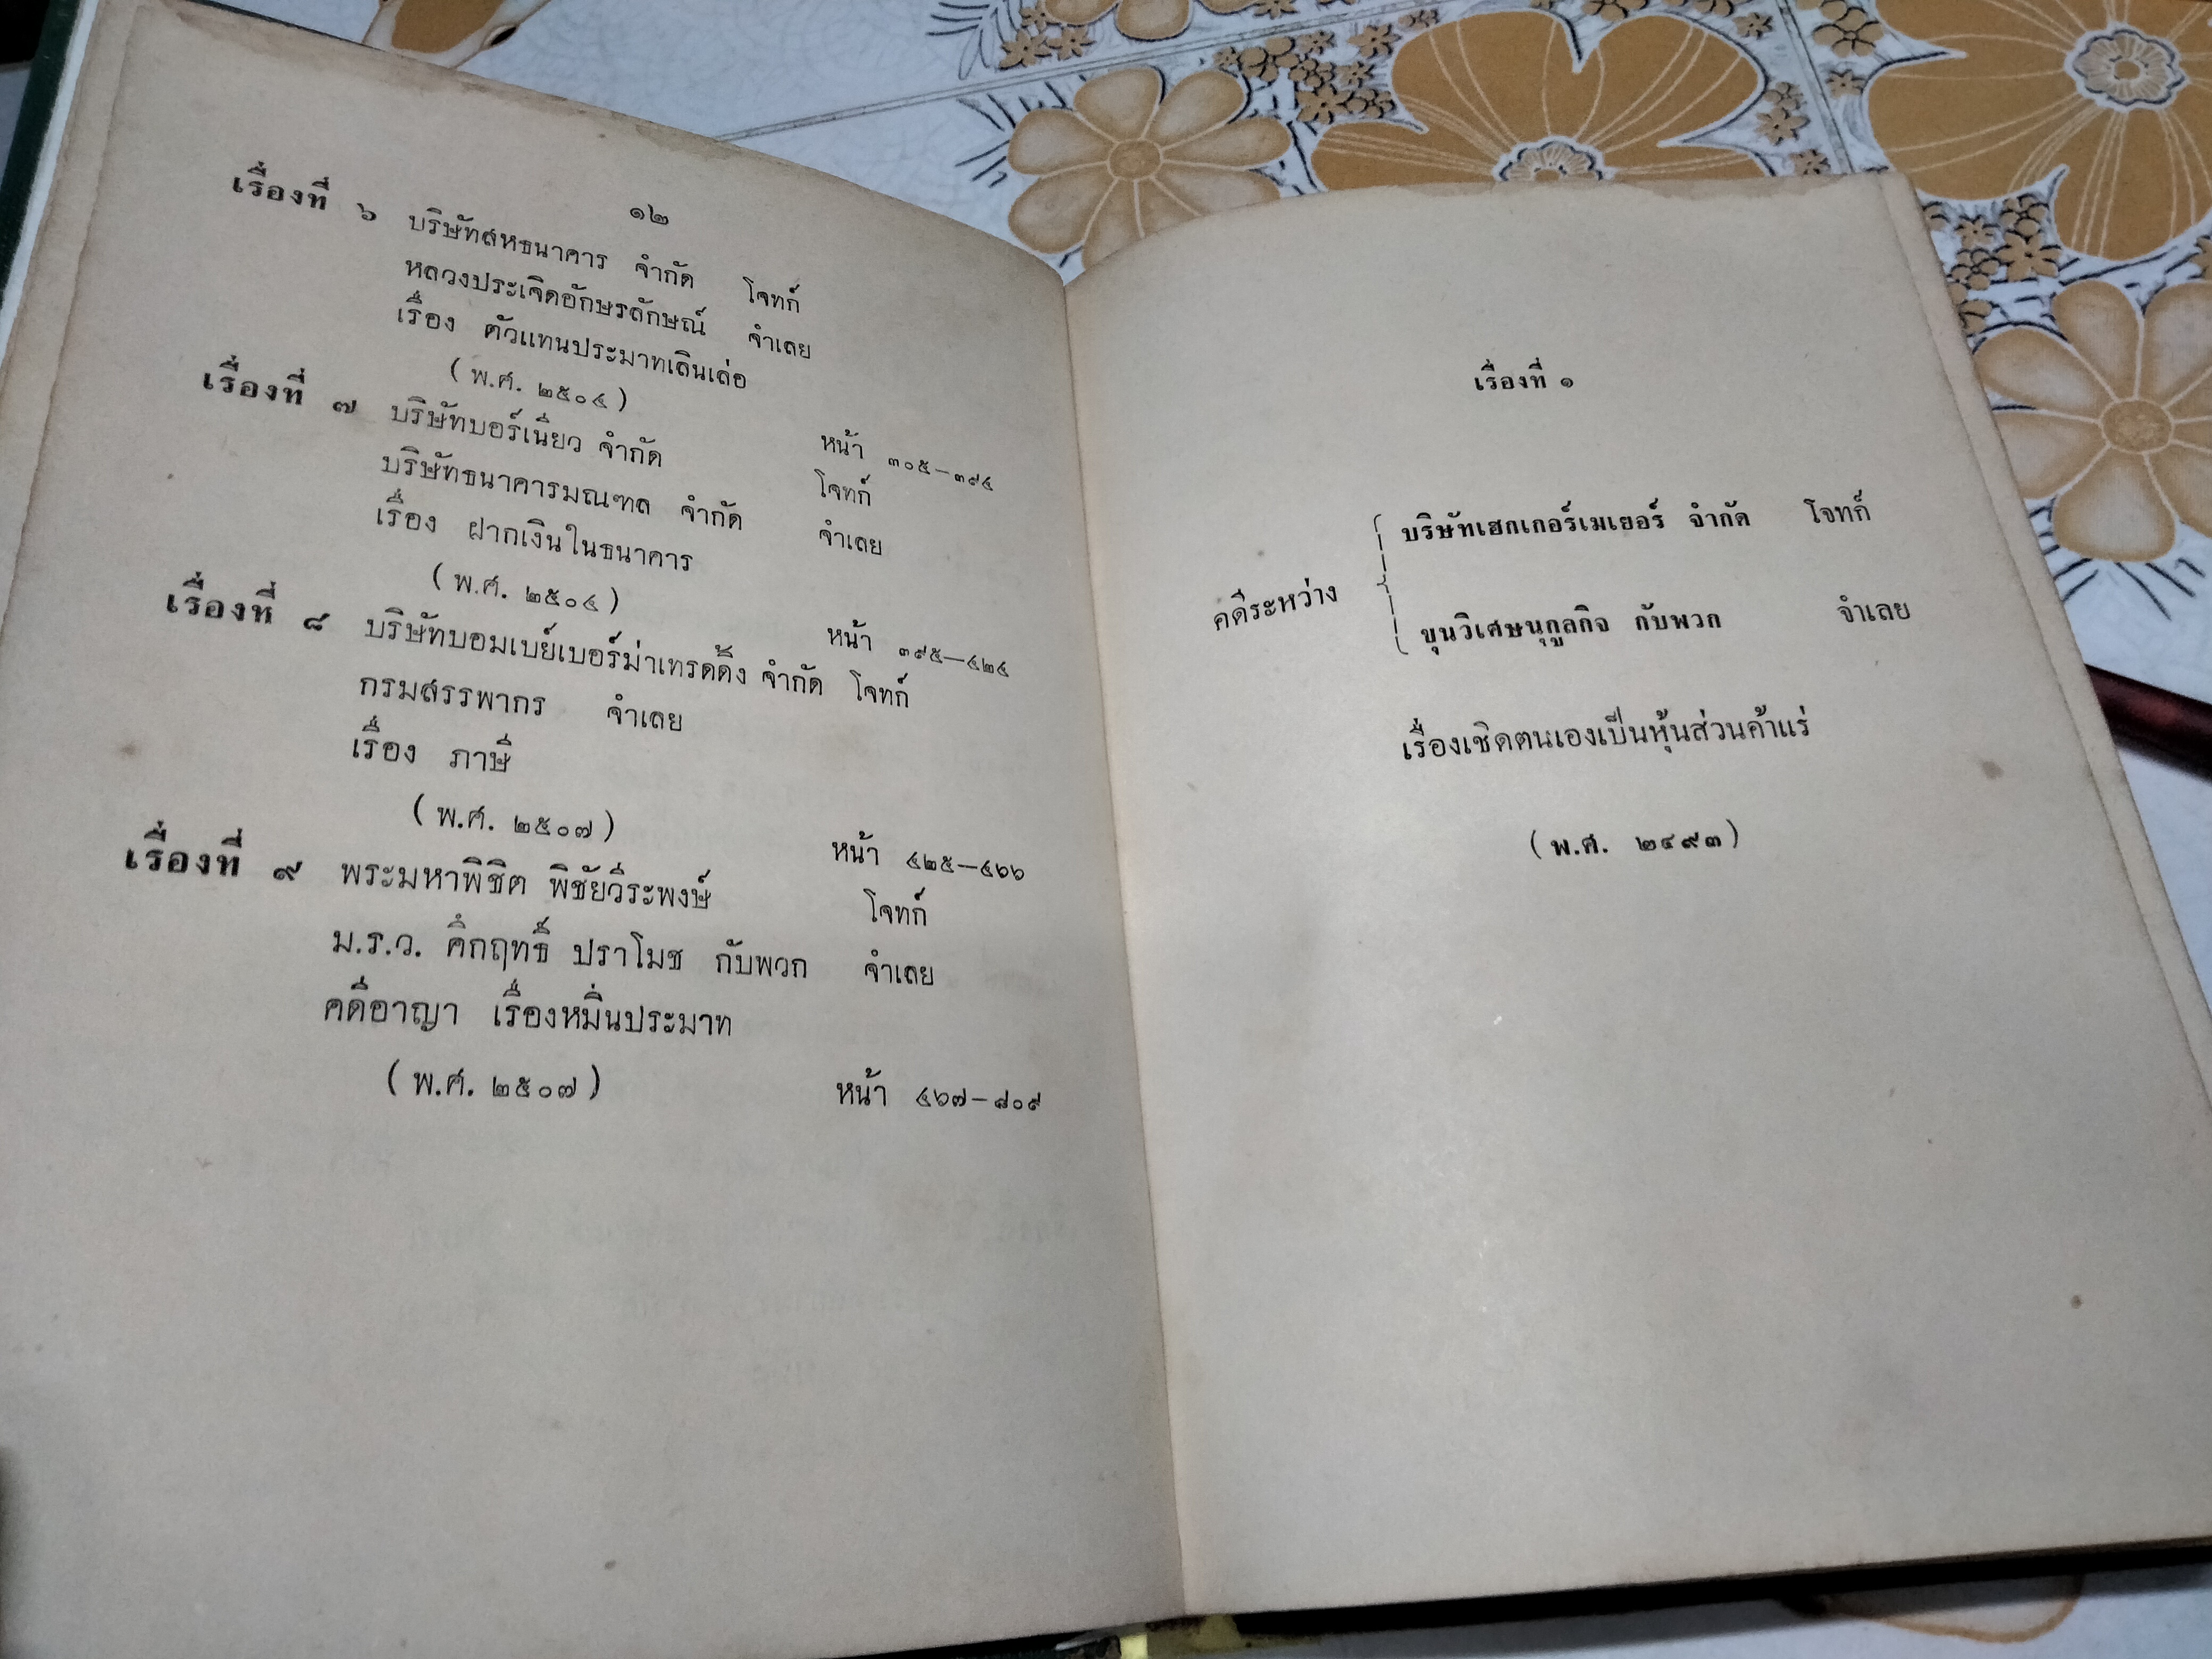 ๑๒
เรื่องที่ ๖ บริษัทสหธนาคาร จำกัด โจทก์
หลวงประเจิดอักษรลักษณ์ จำเลย
เรื่อง ตัวแทนประมาทเลินเล่อ
(พ.ศ. ๒๕๐๔) หน้า ๓๐๕—๓๙๔
เรื่องที่ ๗ บริษัทบอร์เนียว จำกัด โจทก์
บริษัทธนาคารมณฑล จำกัด จำเลย
เรื่อง ฝากเงินในธนาคาร
(พ.ศ. ๒๕๐๔) หน้า ๓๙๕—๔๒๔
เรื่องที่ ๘ บริษัทบอมเบย์เบอร์ม่าเทรดดิ้ง จำกัด โจทก์
กรมสรรพากร จำเลย
เรื่อง ภาษี
(พ.ศ. ๒๕๐๗) หน้า ๔๒๕—๔๖๖
เรื่องที่ ๙ พระมหาพิชิต พิชัยวีระพงษ์ โจทก์
ม.ร.ว. คึกฤทธิ์ ปราโมช กับพวก จำเลย
คดีอาญา เรื่องหมิ่นประมาท
(พ.ศ. ๒๕๐๗) หน้า ๔๖๗—๘๐๙
เรื่องที่ ๑
บริษัทเฮกเกอร์เมเยอร์ จำกัด โจทก์
คดีระหว่าง
ขุนวิเศษนุกูลกิจ กับพวก จำเลย
เรื่องเชิดตนเองเป็นหุ้นส่วนค้าแร่
(พ.ศ. ๒๔๙๓)